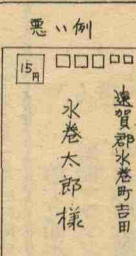 悪い例
15円
遠賀郡水巻町吉田
水巻太郎様